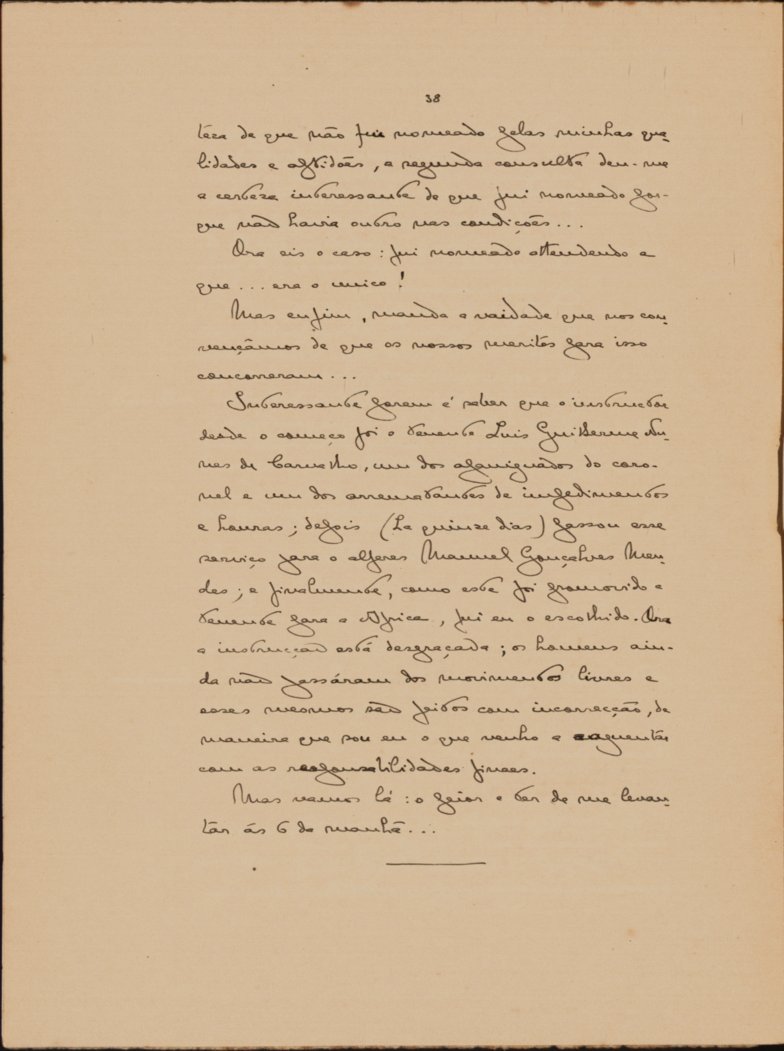 38
têza de que não fui nomeado pelas minhas qua-
lidades e aptidões, a segunda consulta deu-me
a certeza interessante de que fui nomeado por-
que não havia outro nas condições...
Ora eis o caso: fui nomeado attendendo a
que... era o unico!
Mas enfim, manda a vaidade que nos con-
vençâmos de que os nossos meritos para isso
concorreram...
Interessante porem é saber que o instructor
desde o começo foi o tenente Luis Guilherme Nu-
nes de Carvalho, um dos apaniguados do coro-
nel e um dos arrematantes de impedimentos
e honras; depois (ha quinze dias) passou esse
serviço para o alferes Manuel Gonçalves Men-
des; e finalmente, como este foi promovido a
tenente para a Africa, fui eu o escolhido. Ora
a instrucção está desgraçada; os homens ain-
da não passáram dos movimentos livres e
esses mesmos são feitos com incorrecção, de
maneira que sou eu o que venho a aguentar
com as responsabilidades finaes.
Mas vamos lá: o peior é ter de me levan-
tar ás 6 da manhã...